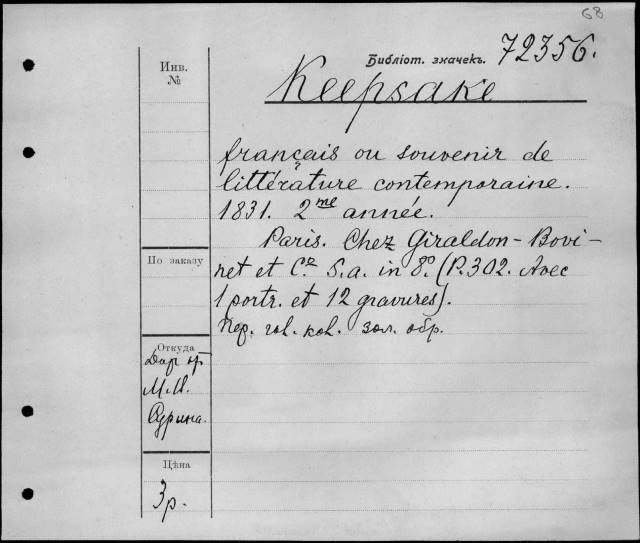 68
Библіот. значекъ. 72356.
Инв.
№
Keepsake
français ou souvenir de
littérature contemporaine.
1831. 2me année.
Paris. Chez Giraldon-Bovi-
net et Ce. S.a. in 8º. (P. 302. Avec
1 portr. et 12 gravures).
Пер. гол. кол. зол. обр.
По заказу
Откуда
Дар от
М. И.
Цѣна
3 р.